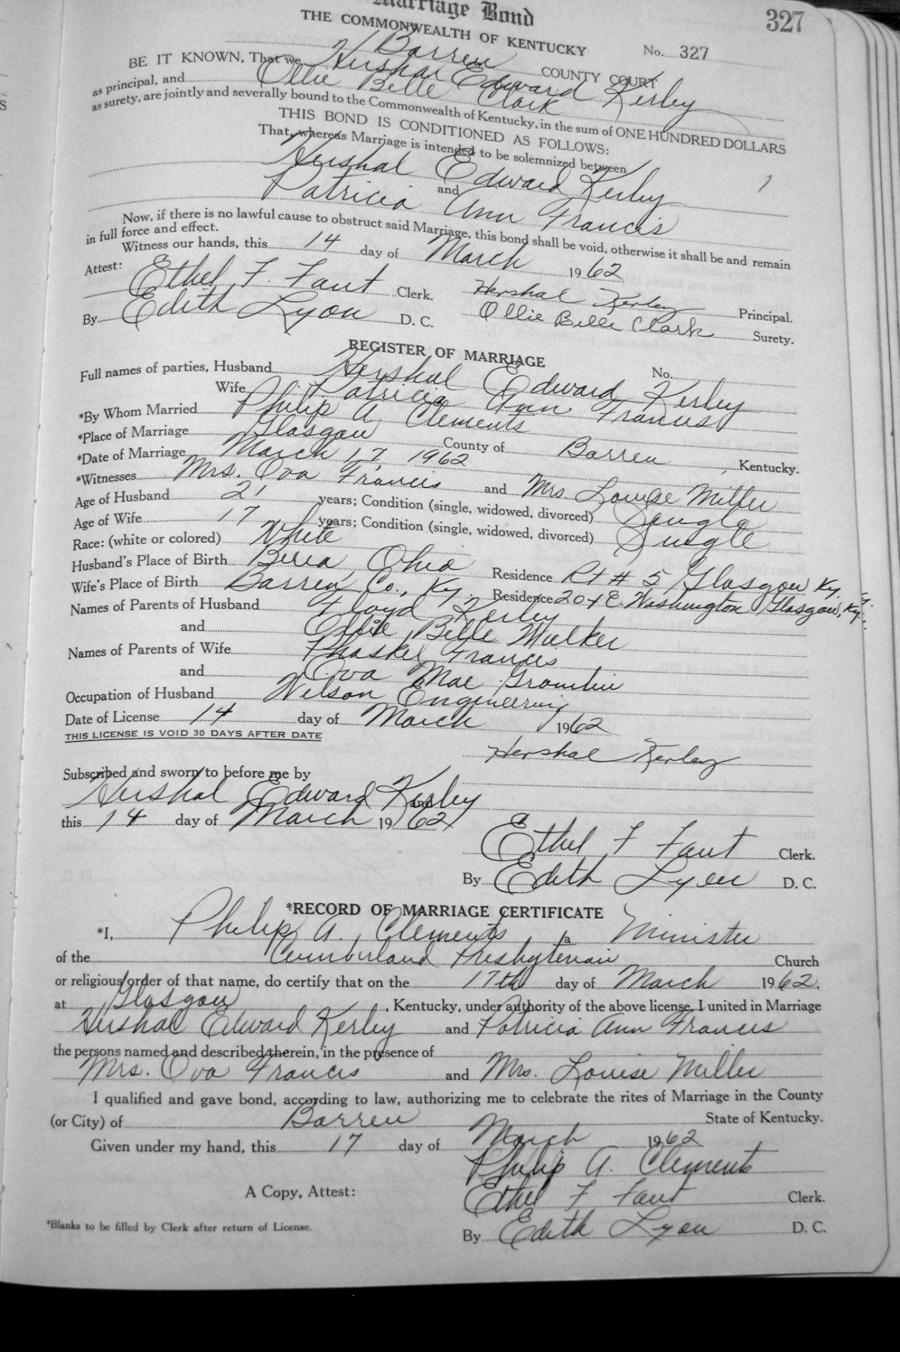 Marriage Bond
327
THE COMMONWEALTH OF KENTUCKY No. 327
Barren COUNTY COURT
BE IT KNOWN, That we, Hershal Edward Kerley
as principal, and Ollie Belle Clark
as surety, are jointly and severally bound to the Commonwealth of Kentucky, in the sum of ONE HUNDRED DOLLARS
THIS BOND IS CONDITIONED AS FOLLOWS:
That, whereas Marriage is intended to be solemnized between
Hershal Edward Kerley
and
Patricia Ann Francis
Now, if there is no lawful cause to obstruct said Marriage, this bond shall be void, otherwise it shall be and remain
in full force and effect.
Witness our hands, this 14 day of March 1962
Attest: Ethel F. Faut Clerk. Hershal Kerley Principal.
By Edith Lyon D. C. Ollie Belle Clark Surety.
REGISTER OF MARRIAGE
Full names of parties, Husband Hershal Edward Kerley No.
Wife Patricia Ann Francis
*By Whom Married Philip A. Clements
*Place of Marriage Glasgow County of Barren, Kentucky.
*Date of Marriage March 17, 1962
*Witnesses Mrs. Ova Francis and Mrs. Louise Miller
Age of Husband 21 years; Condition (single, widowed, divorced) Single
Age of Wife 17 years; Condition (single, widowed, divorced) Single
Race: (white or colored) White
Husband's Place of Birth Berea Ohio Residence Rt # 5 Glasgow Ky.
Wife's Place of Birth Barren Co., Ky. Residence E. Washington Glasgow, Ky.
Names of Parents of Husband Floyd Kerley
and Ollie Belle Mulker
Names of Parents of Wife Thaskel Francis
and Ova Mae
Occupation of Husband Wilson Engineering
Date of License 14 day of March 1962
THIS LICENSE IS VOID 30 DAYS AFTER DATE
Hershal Kerley
Subscribed and sworn to before me by
Hershal Edward Kerley and
this 14 day of March 1962
Ethel F Faut Clerk.
By Edith Lyon D. C.
*RECORD OF MARRIAGE CERTIFICATE
*I, Philip A. Clements, a Minister
of the Cumberland Presbyterian Church
or religious order of that name, do certify that on the 17th day of March 1962.
at Glasgow, Kentucky, under authority of the above license, I united in Marriage
Hershal Edward Kerley and Patricia Ann Francis
the persons named and described therein, in the presence of
Mrs. Ova Francis and Mrs. Louise Miller
I qualified and gave bond, according to law, authorizing me to celebrate the rites of Marriage in the County
(or City) of Barren State of Kentucky.
Given under my hand, this 17 day of March 1962
Philip A. Clements
A Copy, Attest: Ethel F Faut Clerk.
*Blanks to be filled by Clerk after return of License.
By Edith Lyon D. C.